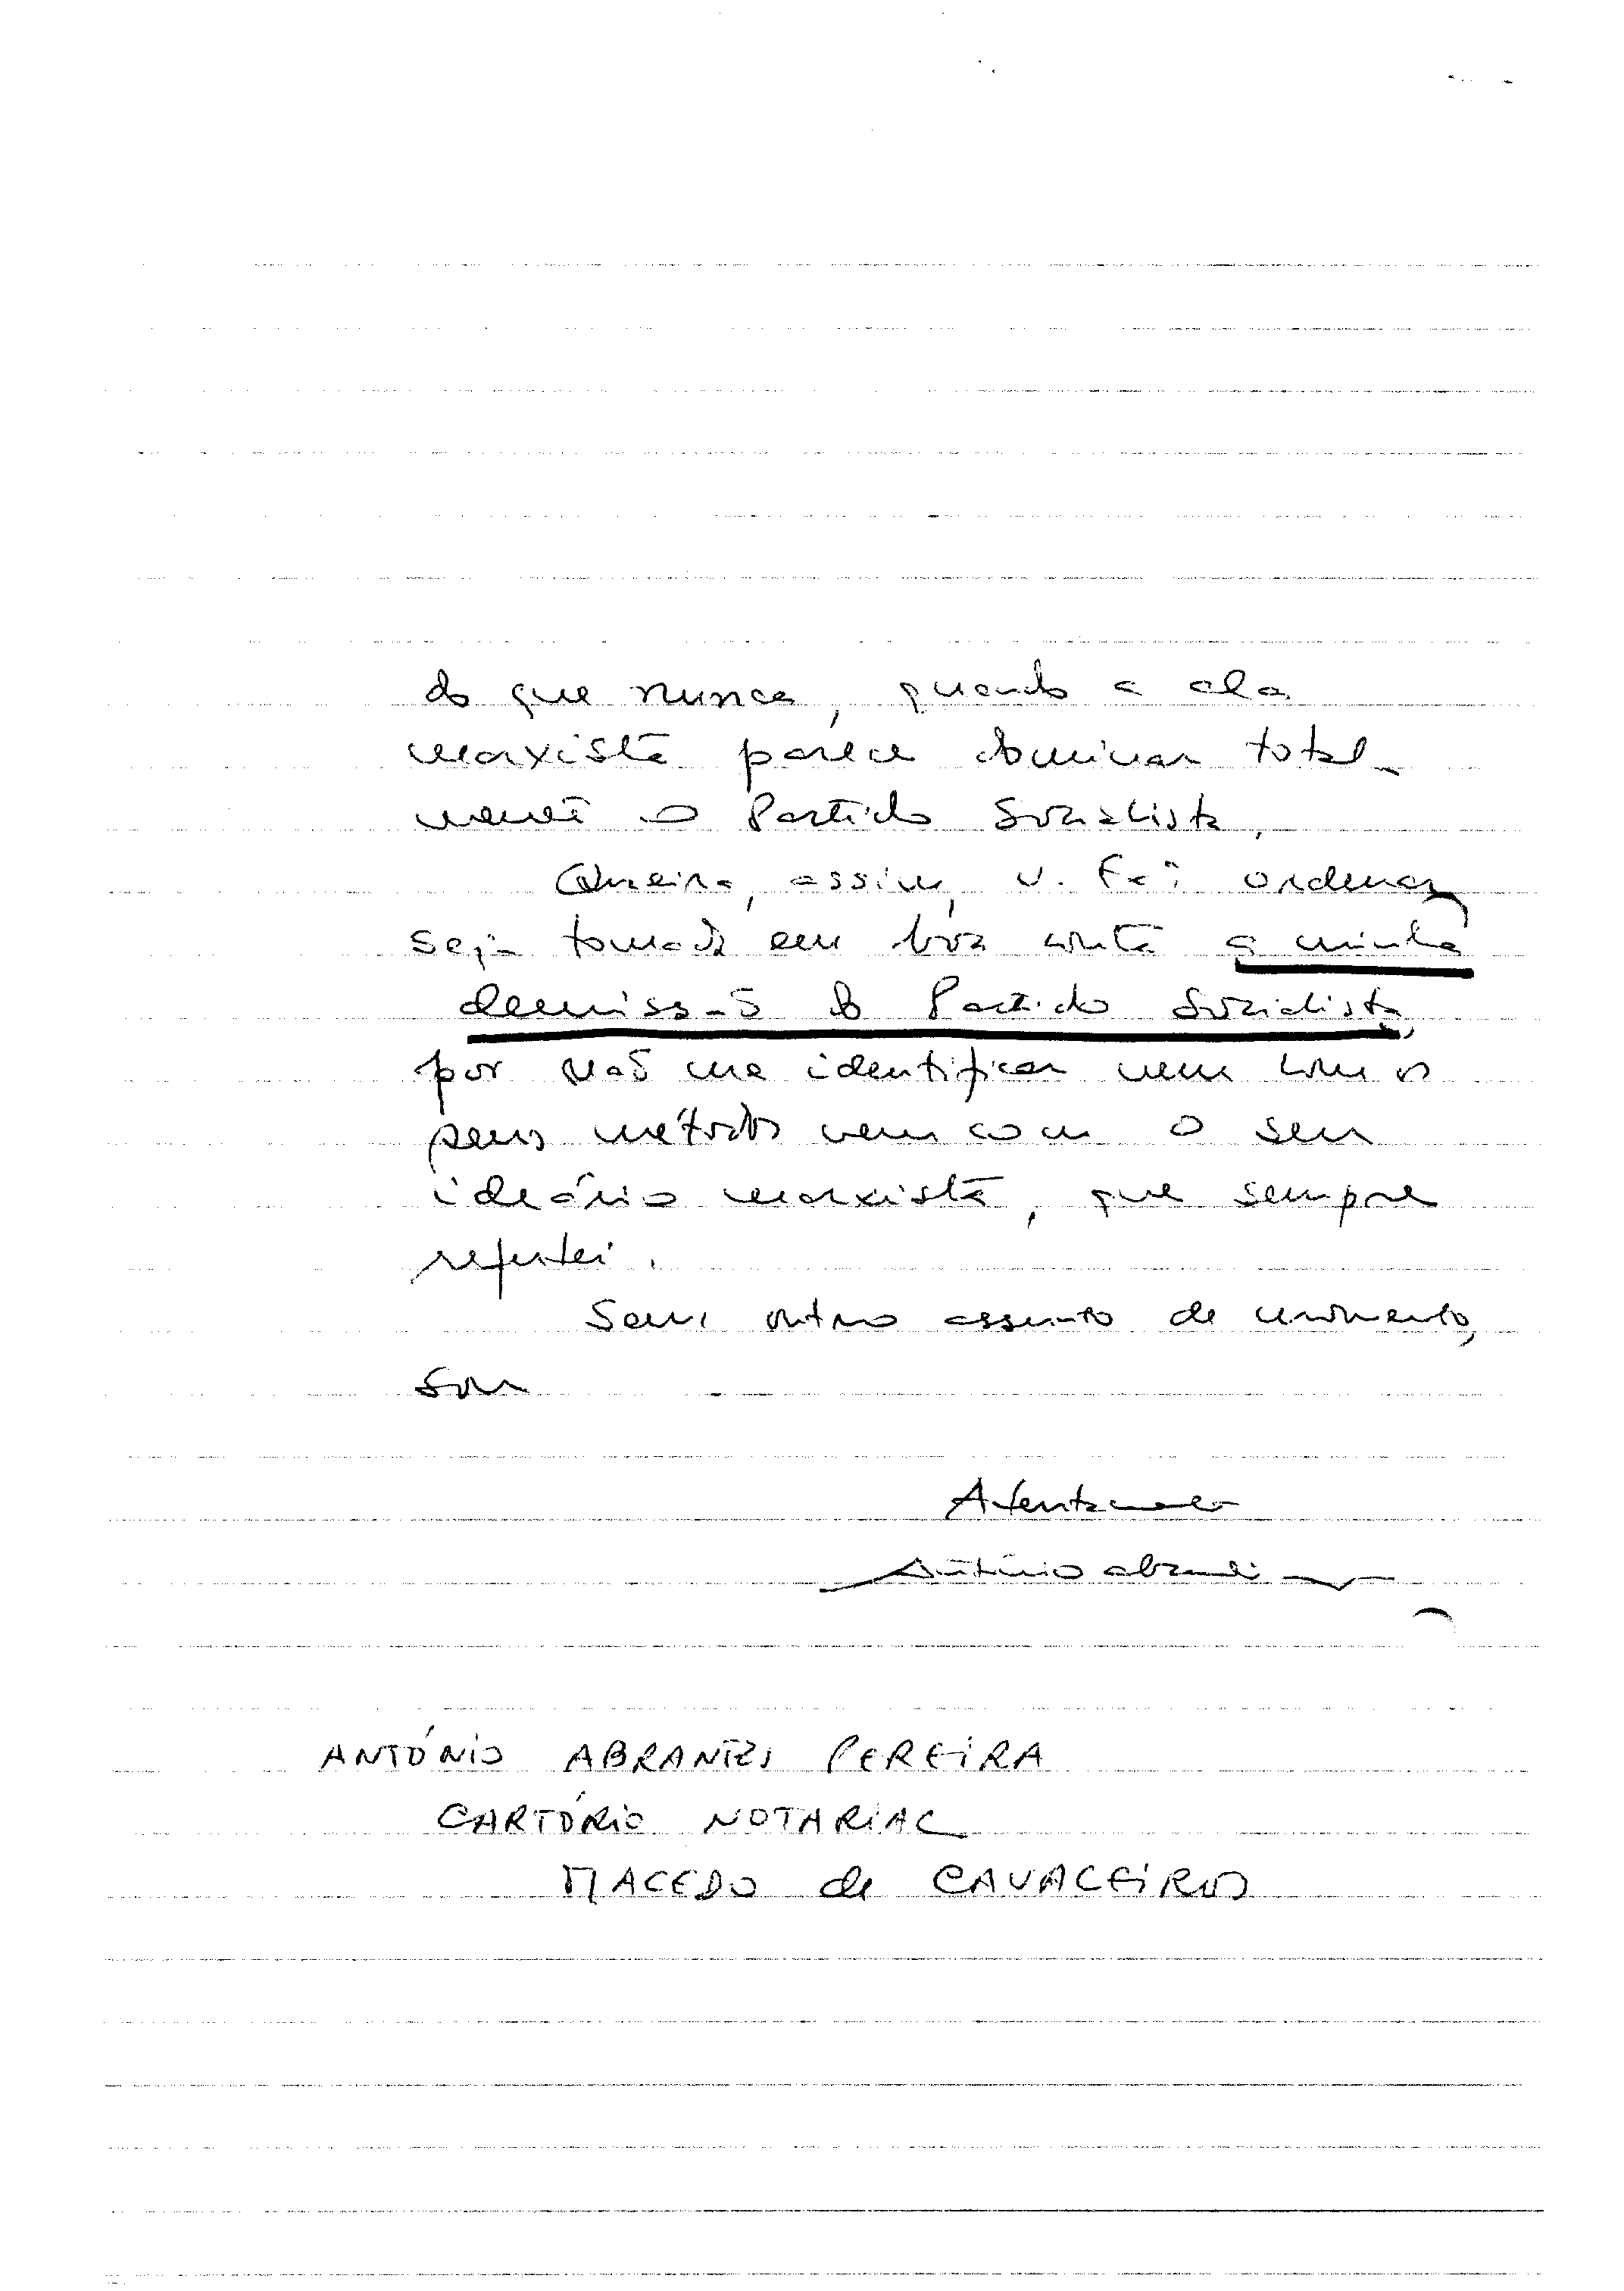 do que nunca, quando a ala
marxista parece dominar total-
mente o Partido Socialista.
Queira, assim, V. Exª ordenar
seja tomada em boa conta a minha
demissão do Partido Socialista,
por não me identificar nem com os
seus métodos nem com o seu
ideário marxista, que sempre
rejeitei.
Sem outro assunto de momento,
sou
Atentamente
António Abrantes
ANTÓNIO ABRANTES PEREIRA
CARTÓRIO NOTARIAL
MACEDO de CAVALEIROS